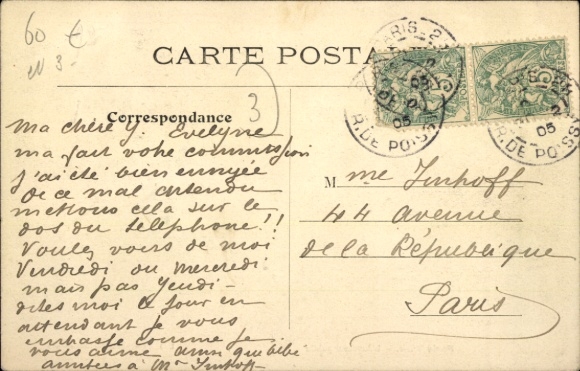 60 €
N 3-
CARTE POSTALE
PARIS
05
R. DE POISSY
05
R. DE POISSY
3
Correspondance
Ma chère G. Evelyne
ma fait votre commission
j'ai été bien ennuyée
de ce mal entendu
mettons cela sur le
dos du téléphone!!
Voulez vous de moi
Vendredi ou Mercredi
mais pas Jeudi -
dites moi le jour en
attendant je vous
embrasse comme je
vous aime ainsi que bébé
amitiés à Mr Imhoff
Mme Imhoff
44 avenue
de la République
Paris